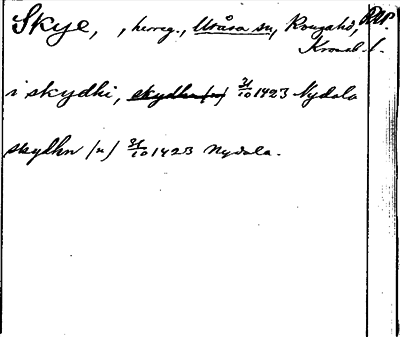 Skye, , herreg., Uråsa sn, Konga hd, RAP.
Kronob. l.
i skydhi, skydhn (n) 31/10 1423 Nydala
skydhn (n) 31/10 1423 Nydala.